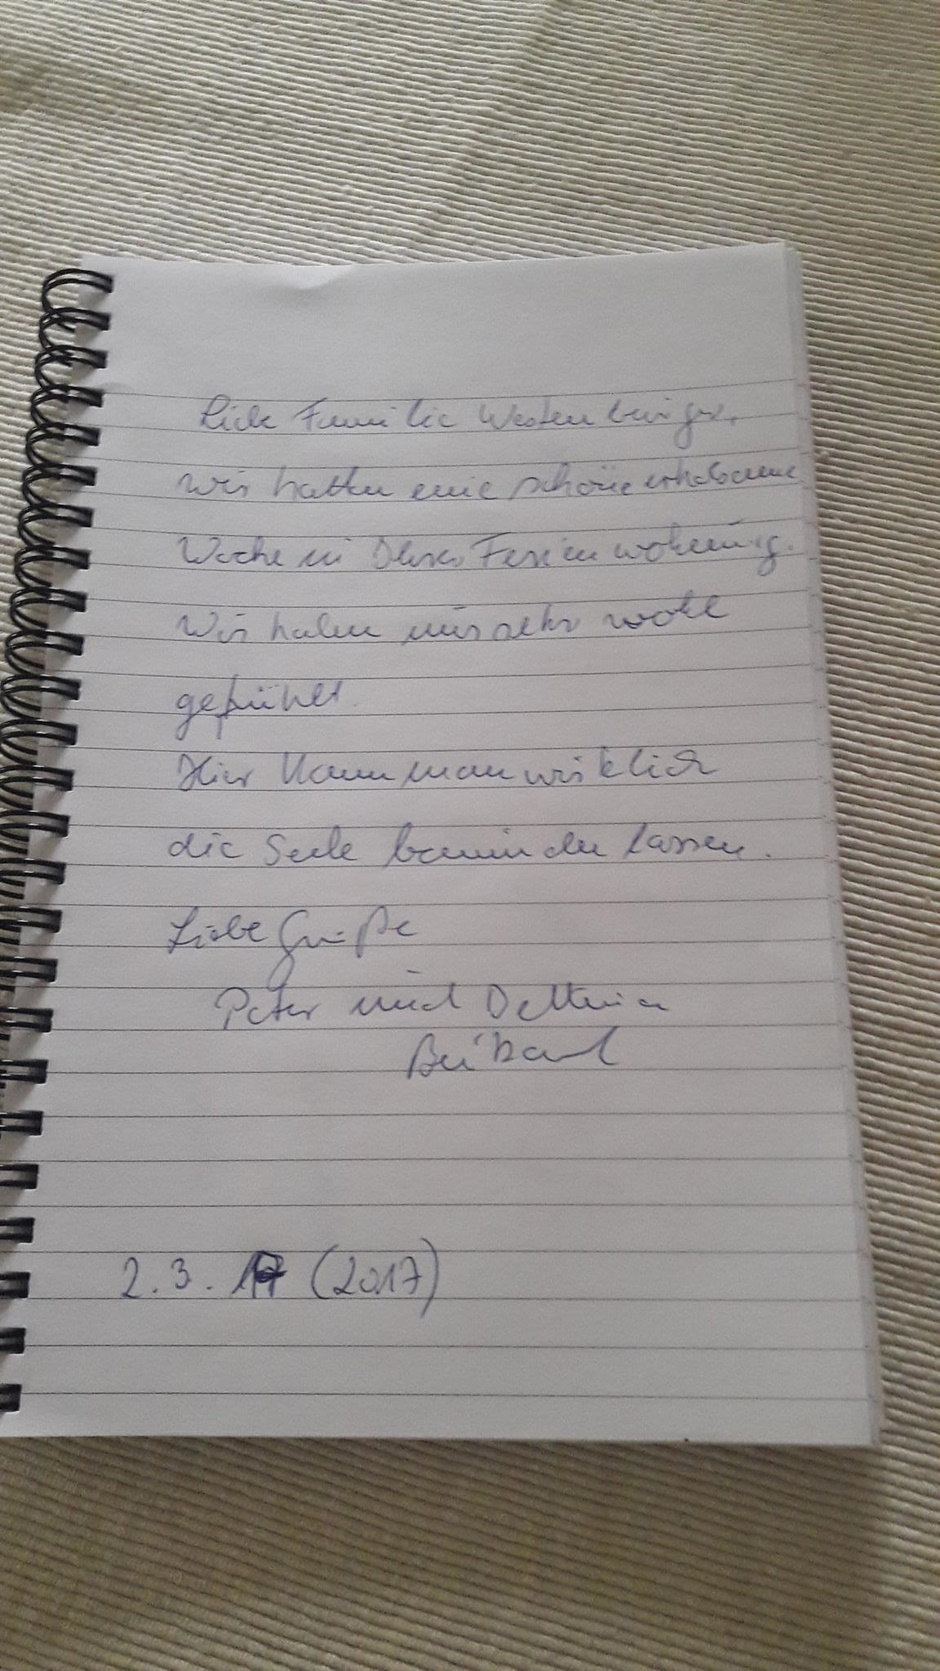 Liebe Familie Westenburger,
wir hatten eine schöne erholsame
Woche in Ferienwohnung.
Wir haben uns sehr wohl
gefühlt.
Hier kann man wirklich
die Seele baumeln lassen.
Liebe Grüße
Peter und Bettina
2.3.17 (2017)